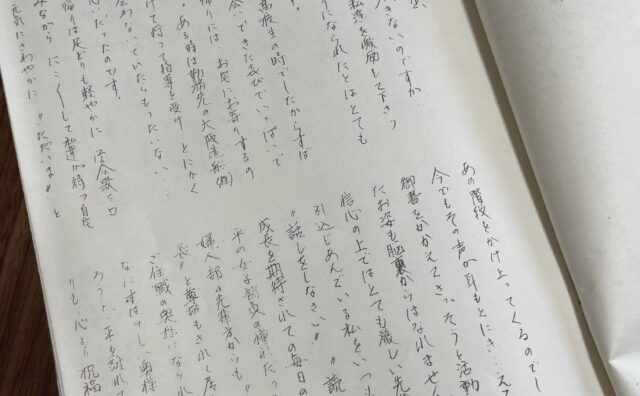 できないのですか、
私達を激励して下さっ
りになられたとはとても
高校生の時でしたからまず
会いできた喜びでいっぱいで
帰りには お店にお寄りするの
ある時は勤務先の大阪造船(株)
けて行って指導を受け とにかく
っていたらもったいない…
心だったのです。
帰りは足どりも軽やかに 学会歌を口
みながら にこ〱して私達が待つ自宅
元気にさわやかに "ただいま" と
あの階段をかけ上ってくるのでし
今でもその声が耳もとにき…え
御書をかかえてさっそうと活動
たお姿も脳裏からはなれません
信心の上ではとても厳しい先
引込じあんでいる私をいつも
"話しをしなさい" "説
成長を期待されての毎日の
平の女子部員の憧れだっ
婦人部の先輩方からも"
長" と もされて居
ご住職の奥様になられ
なにすばらしい奥様
平を離れて
りも 心より祝福